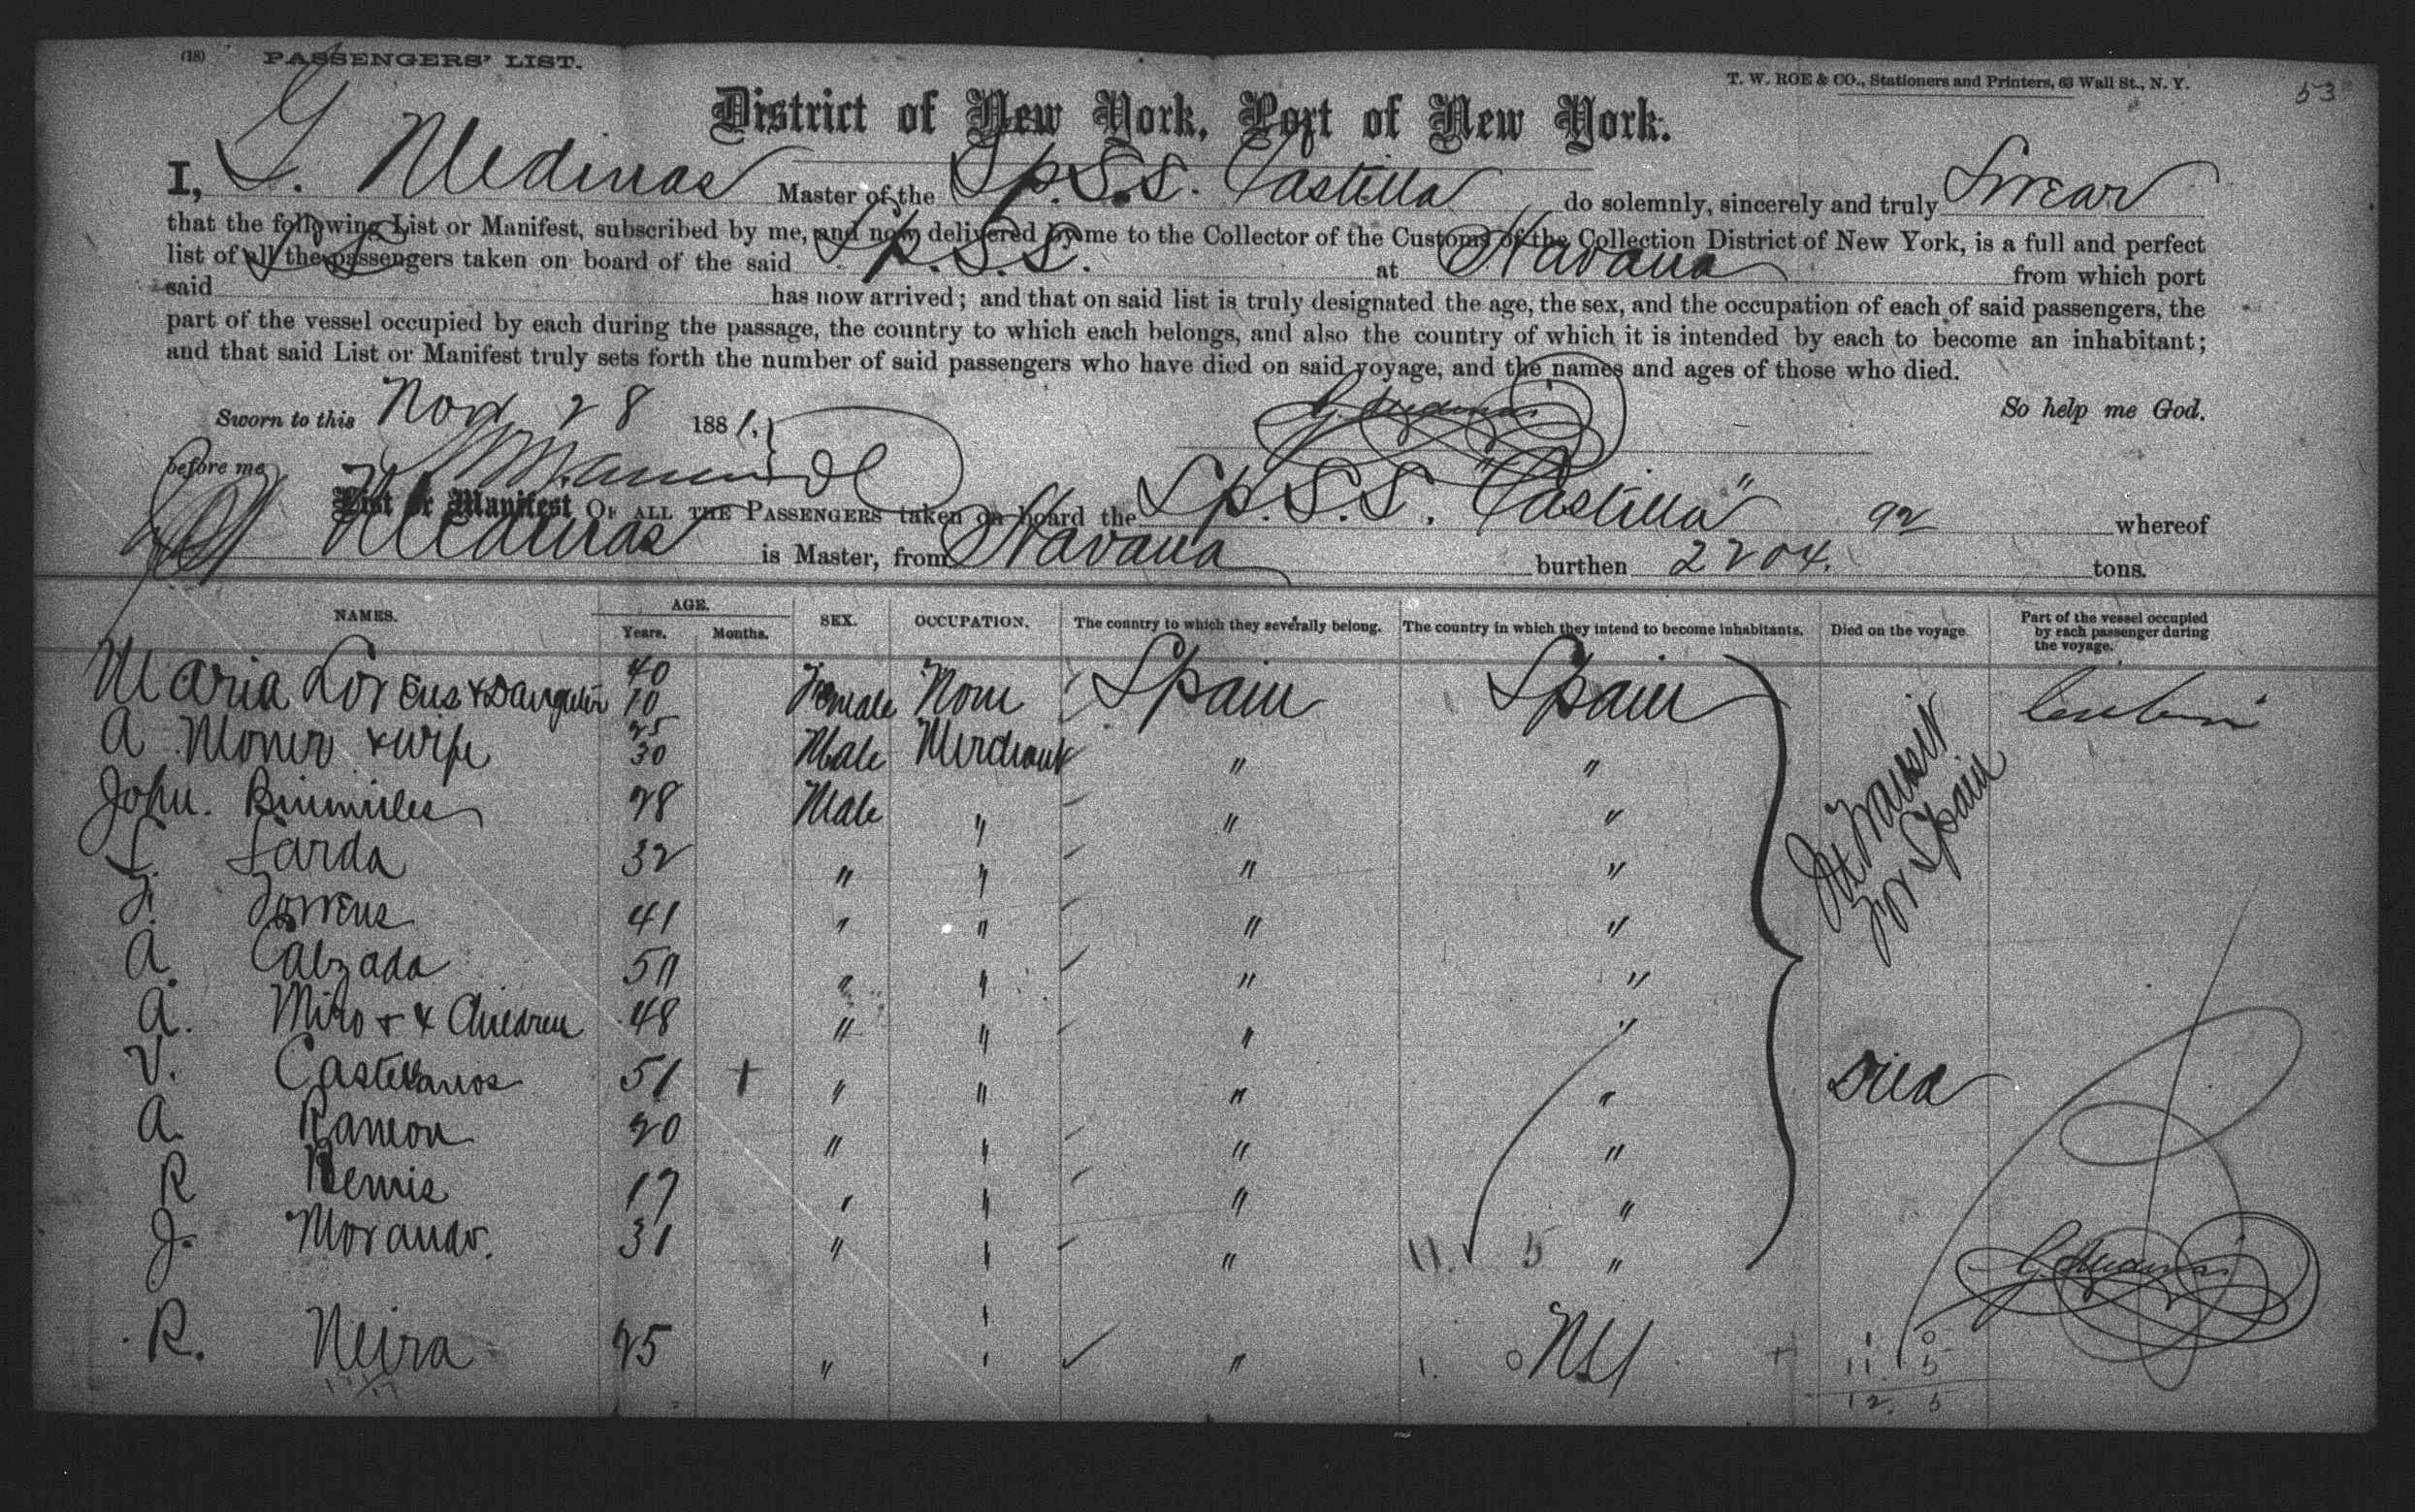 (18) PASSENGERS' LIST.
T. W. ROE & CO., Stationers and Printers, 63 Wall St., N. Y.
53
District of New York, Port of New York.
I, G. Medinas Master of the Sp. S.S. Castilla do solemnly, sincerely and truly Swear
that the following List or Manifest, subscribed by me, and now delivered by me to the Collector of the Customs of the Collection District of New York, is a full and perfect
list of all the passengers taken on board of the said Sp. S.S. at Havana from which port
said has now arrived; and that on said list is truly designated the age, the sex, and the occupation of each of said passengers, the
part of the vessel occupied by each during the passage, the country to which each belongs, and also the country of which it is intended by each to become an inhabitant;
and that said List or Manifest truly sets forth the number of said passengers who have died on said voyage, and the names and ages of those who died.
So help me God.
Sworn to this Nov 28 1881. G. Medinas
before me
List or Manifest OF ALL THE PASSENGERS taken on board the Sp. S.S. "Castilla" 92 whereof
Medinas is Master, from Havana burthen 2204. tons.
NAMES. AGE. Years. Months. SEX. OCCUPATION. The country to which they severally belong. The country in which they intend to become inhabitants. Died on the voyage. Part of the vessel occupied by each passenger during the voyage.
Maria Lorens & Daughter 40 10 Female None Spain Spain
A Moner & wife 25 30 Male Merchant " "
John. 28 Male " " "
Sarda 32 " " " "
F. Torrens 41 " " " "
A. Calzada 50 " " " "
A. Miro & 4 Children 48 " " " "
V. Castellanos 51 + " " " " Died
A. Ramon 20 " " " "
R Bemis 17 " " " "
J. Morando. 31 " " " 11. 5 "
In Transit
For Spain
G. Medinas
R. Neira 25 " " " 1. 0 NY + 1 0
11. 5
12. 5